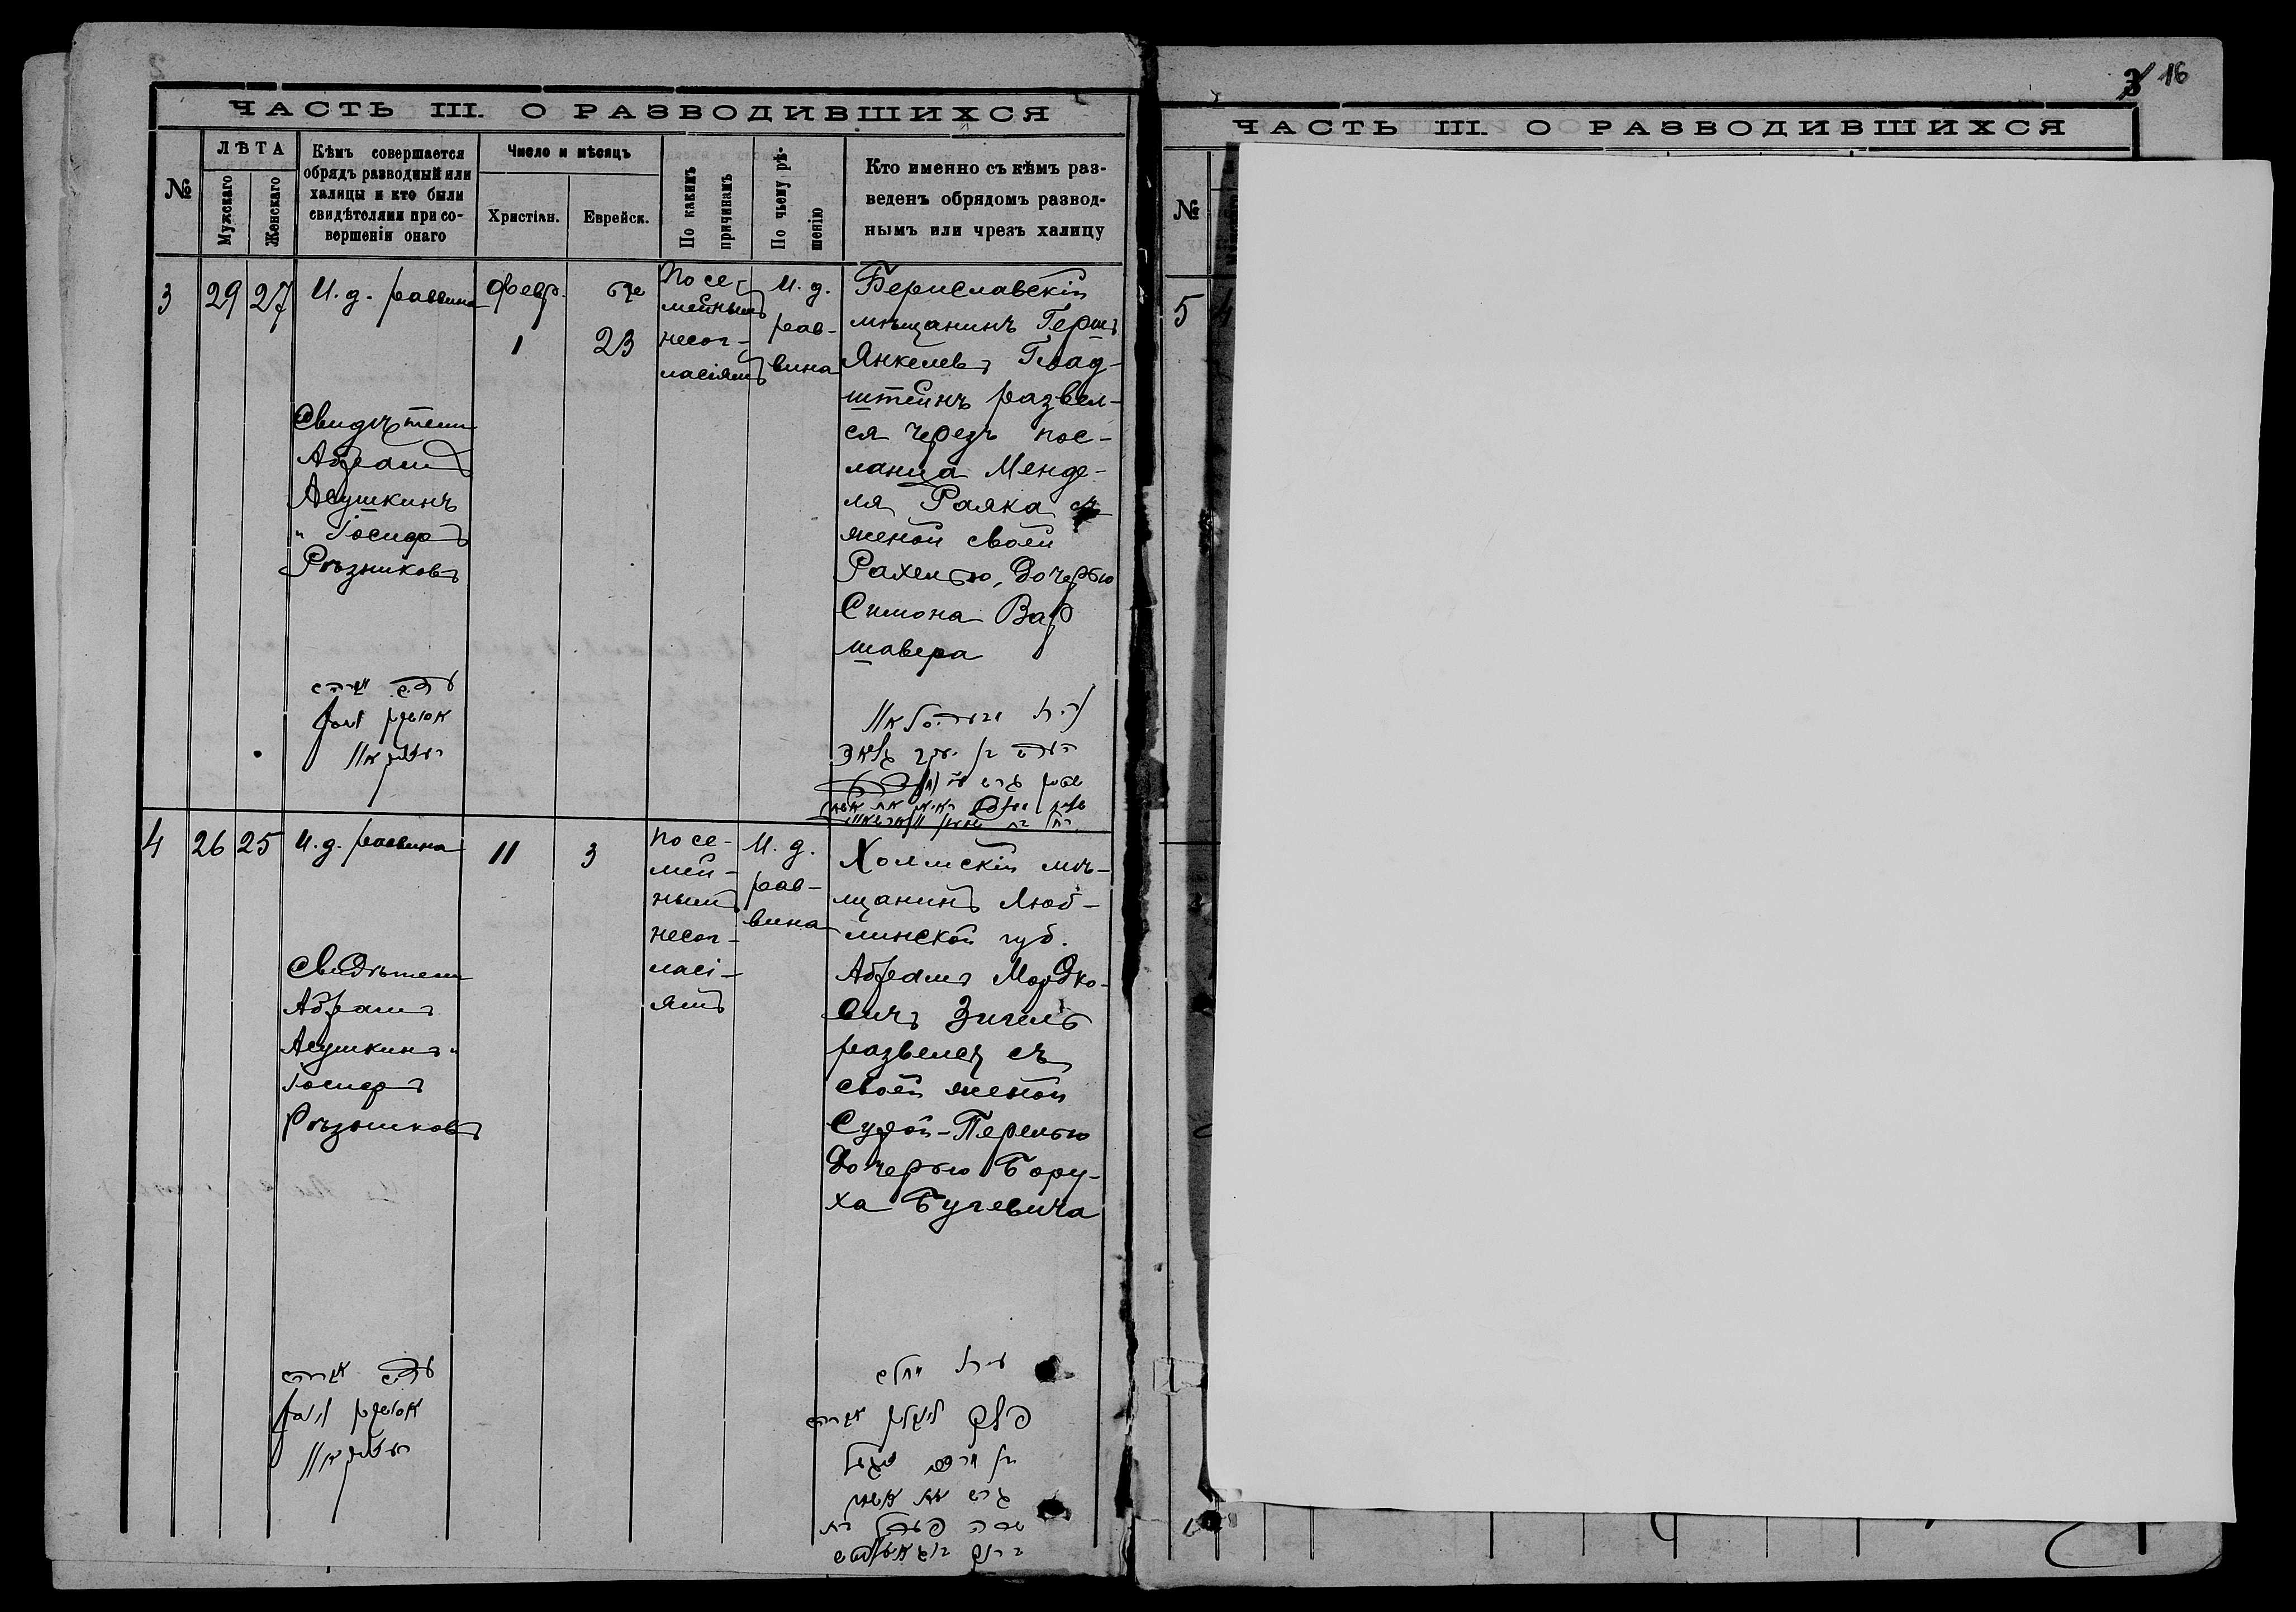 ЧАСТЬ III. О РАЗВОДИВШИХСЯ
№
ЛѢТА
Мужскаго
Женскаго
Кѣмъ совершается
обрядъ разводный или
халицы и кто были
свидѣтелями при со-
вершеніи онаго
Число и мѣсяцъ
Христіан.
Еврейск.
По какимъ
причинамъ
По чьему рѣ-
шенію
Кто именно съ кѣмъ раз-
веденъ обрядомъ развод-
нымъ или чрезъ халицу
3
29
27
И. д. раввина
Свидѣтели
Абрамъ
Асушкинъ
и Іосифъ
Рѣзниковъ
עדים אברהם
Февр.
1
23
По се-
мейнымъ
несог-
ласіямъ
И. д.
рав-
вина
Бериславскій
мѣщанинъ Гершъ
Янкелевъ Глад-
штейнъ развел-
ся черезъ пос-
ланца Менде-
ля Раяка съ
женой своей
Рахелью, дочерью
Симона Вар
шавера
4
26
25
И. д. раввина
Свидѣтели
Абрамъ
Асушкинъ и
Іосифъ
Рѣзниковъ
עדים אברהם
11
3
По се-
мей-
нымъ
несог-
ласі-
ямъ
И. д.
рав-
вина
Холмскій мѣ-
щанинъ Люб-
линской губ.
Абрамъ Мордко-
вичъ Зигель
развелся съ
своей женой
Сурой-Перелью
дочерью Бору-
ха Бугевича
3 16
ЧАСТЬ III. О РАЗВОДИВШИХСЯ
№
5